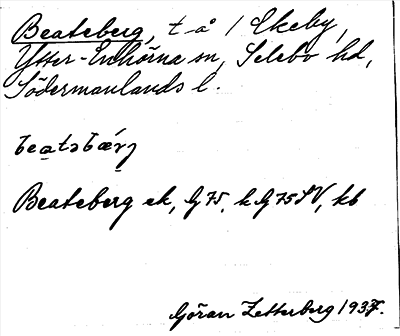 Beateberg, t å 1 Ekeby,
Ytter-Enhörna sn, Selebo hd,
Södermanlands l.
Beateberg ek, G 75, k G 75 SV, kb
Göran Zetterberg 1937.